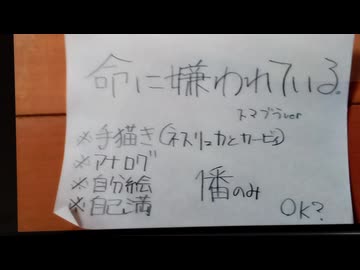 命に嫌われている。
スマブラver
※手描き(ネスリュカとカービィ)
※アナログ
※自分絵
※自己満
幡のみ
OK?